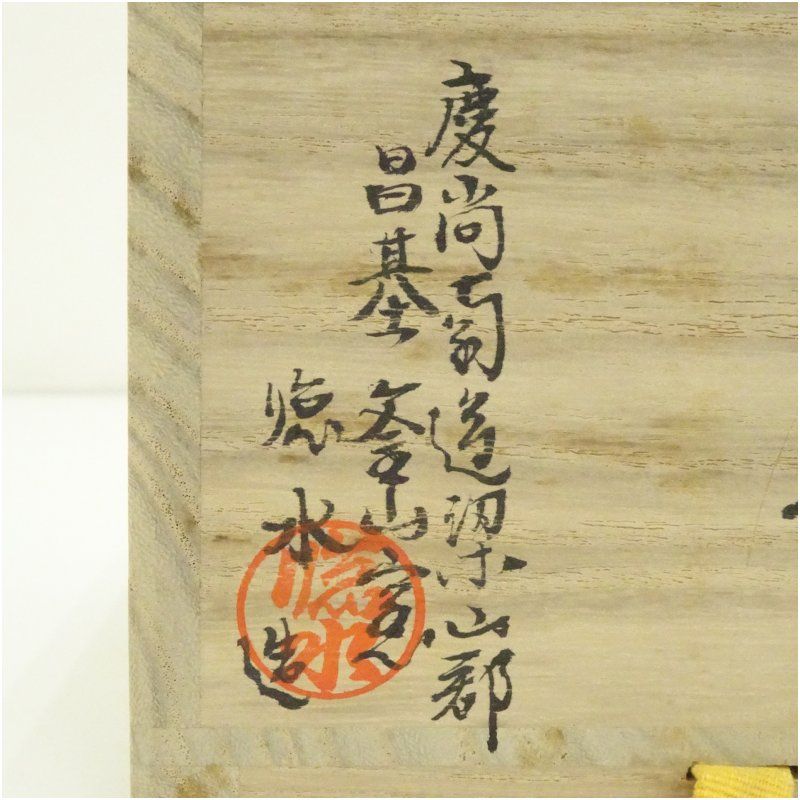 慶尚南道梁山郡
昌基釜山窯
水造
水